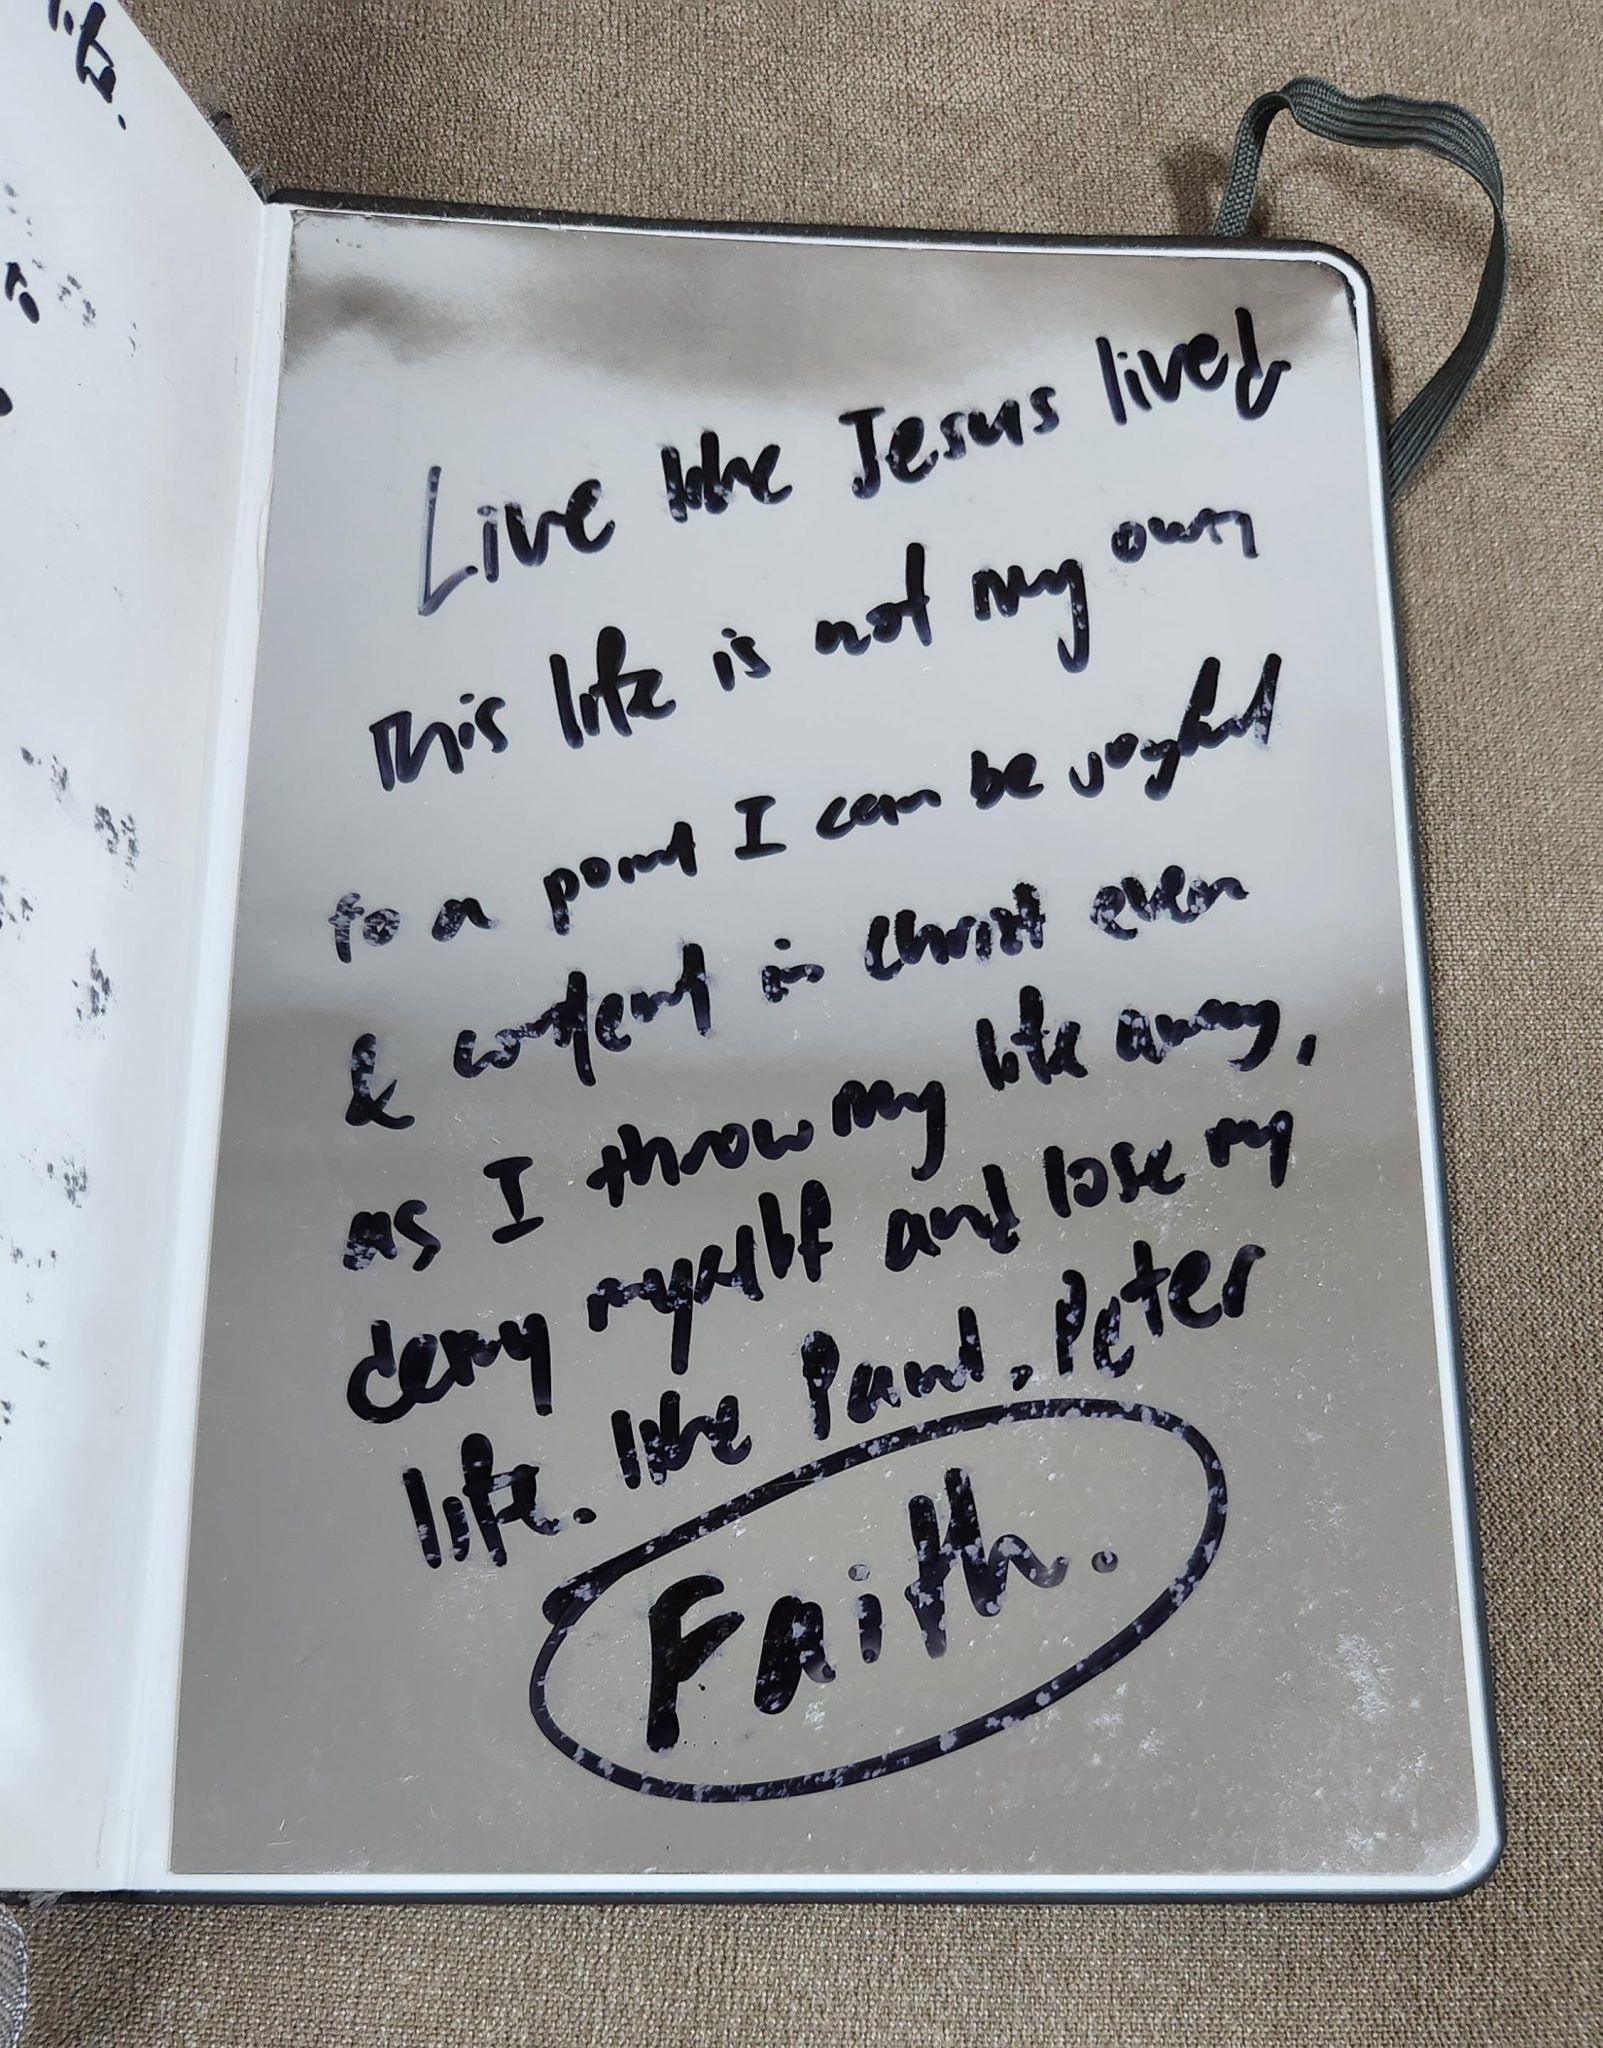 life.
to
Live like Jesus lived
This life is not my own
to a point I can be joyful
& content in Christ even
as I throw my life away,
deny myself and lose my
life. like Paul. Peter
Faith.